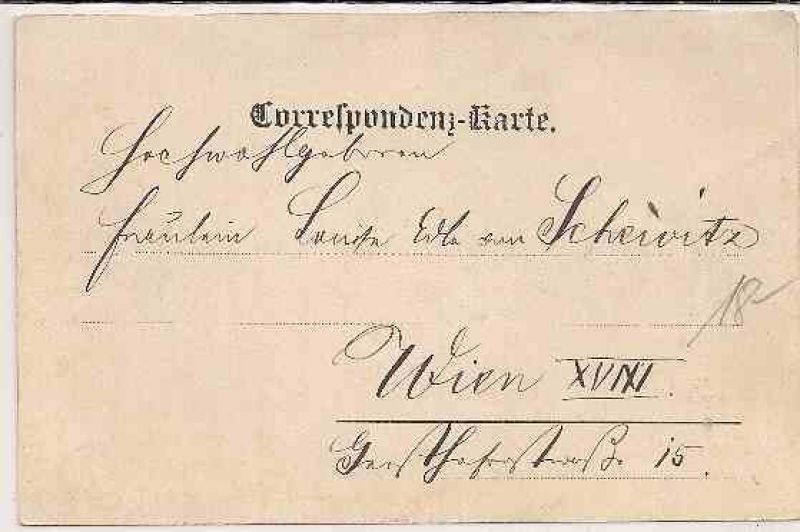 Correspondenz-Karte.
Hochwohlgeboren
Fräulein Louise Edle von Scheivitz
18
Wien XVIII.
Gersthoferstraße 15.